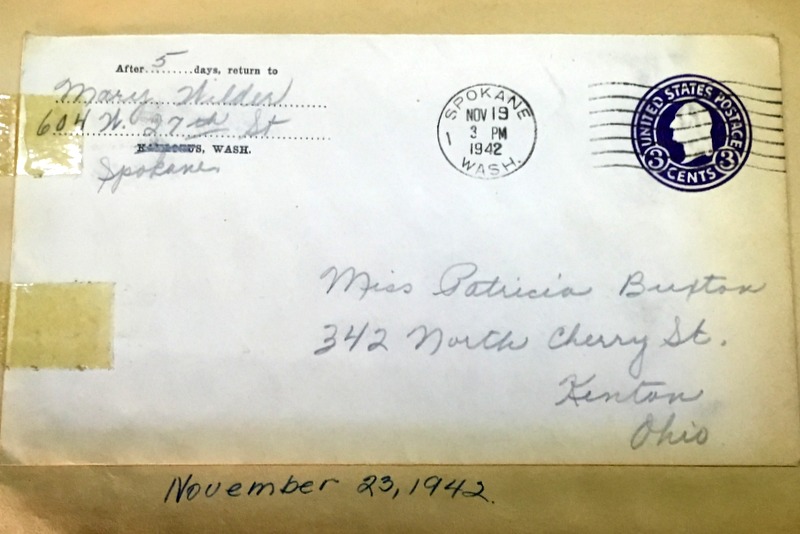 After 5 days, return to
Mary Wilder
604 W. 27th St
S, WASH.
Spokane
SPOKANE
WASH.
NOV 19
3 PM
1942
1
UNITED STATES POSTAGE
3 CENTS 3
Miss Patricia Buxton
342 North Cherry St.
Kenton
Ohio
November 23, 1942.